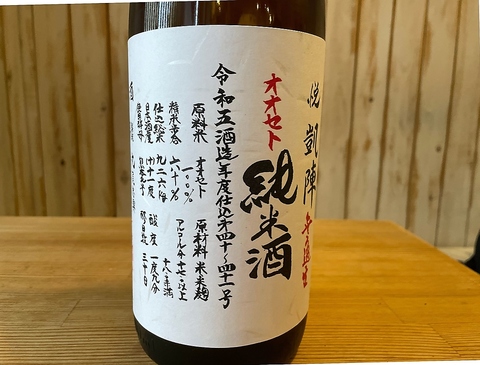 悦 凱陣
オオセト
純米酒
令和五酒造年度仕込第四十～四十一号
原料米 オオセト 一〇〇%
精米歩合 六十%
仕込総米 九二六㎏
日本酒度
原材料 米 米麹
アルコール分 十七以上
十八未満
酸度 一度九分
三十日